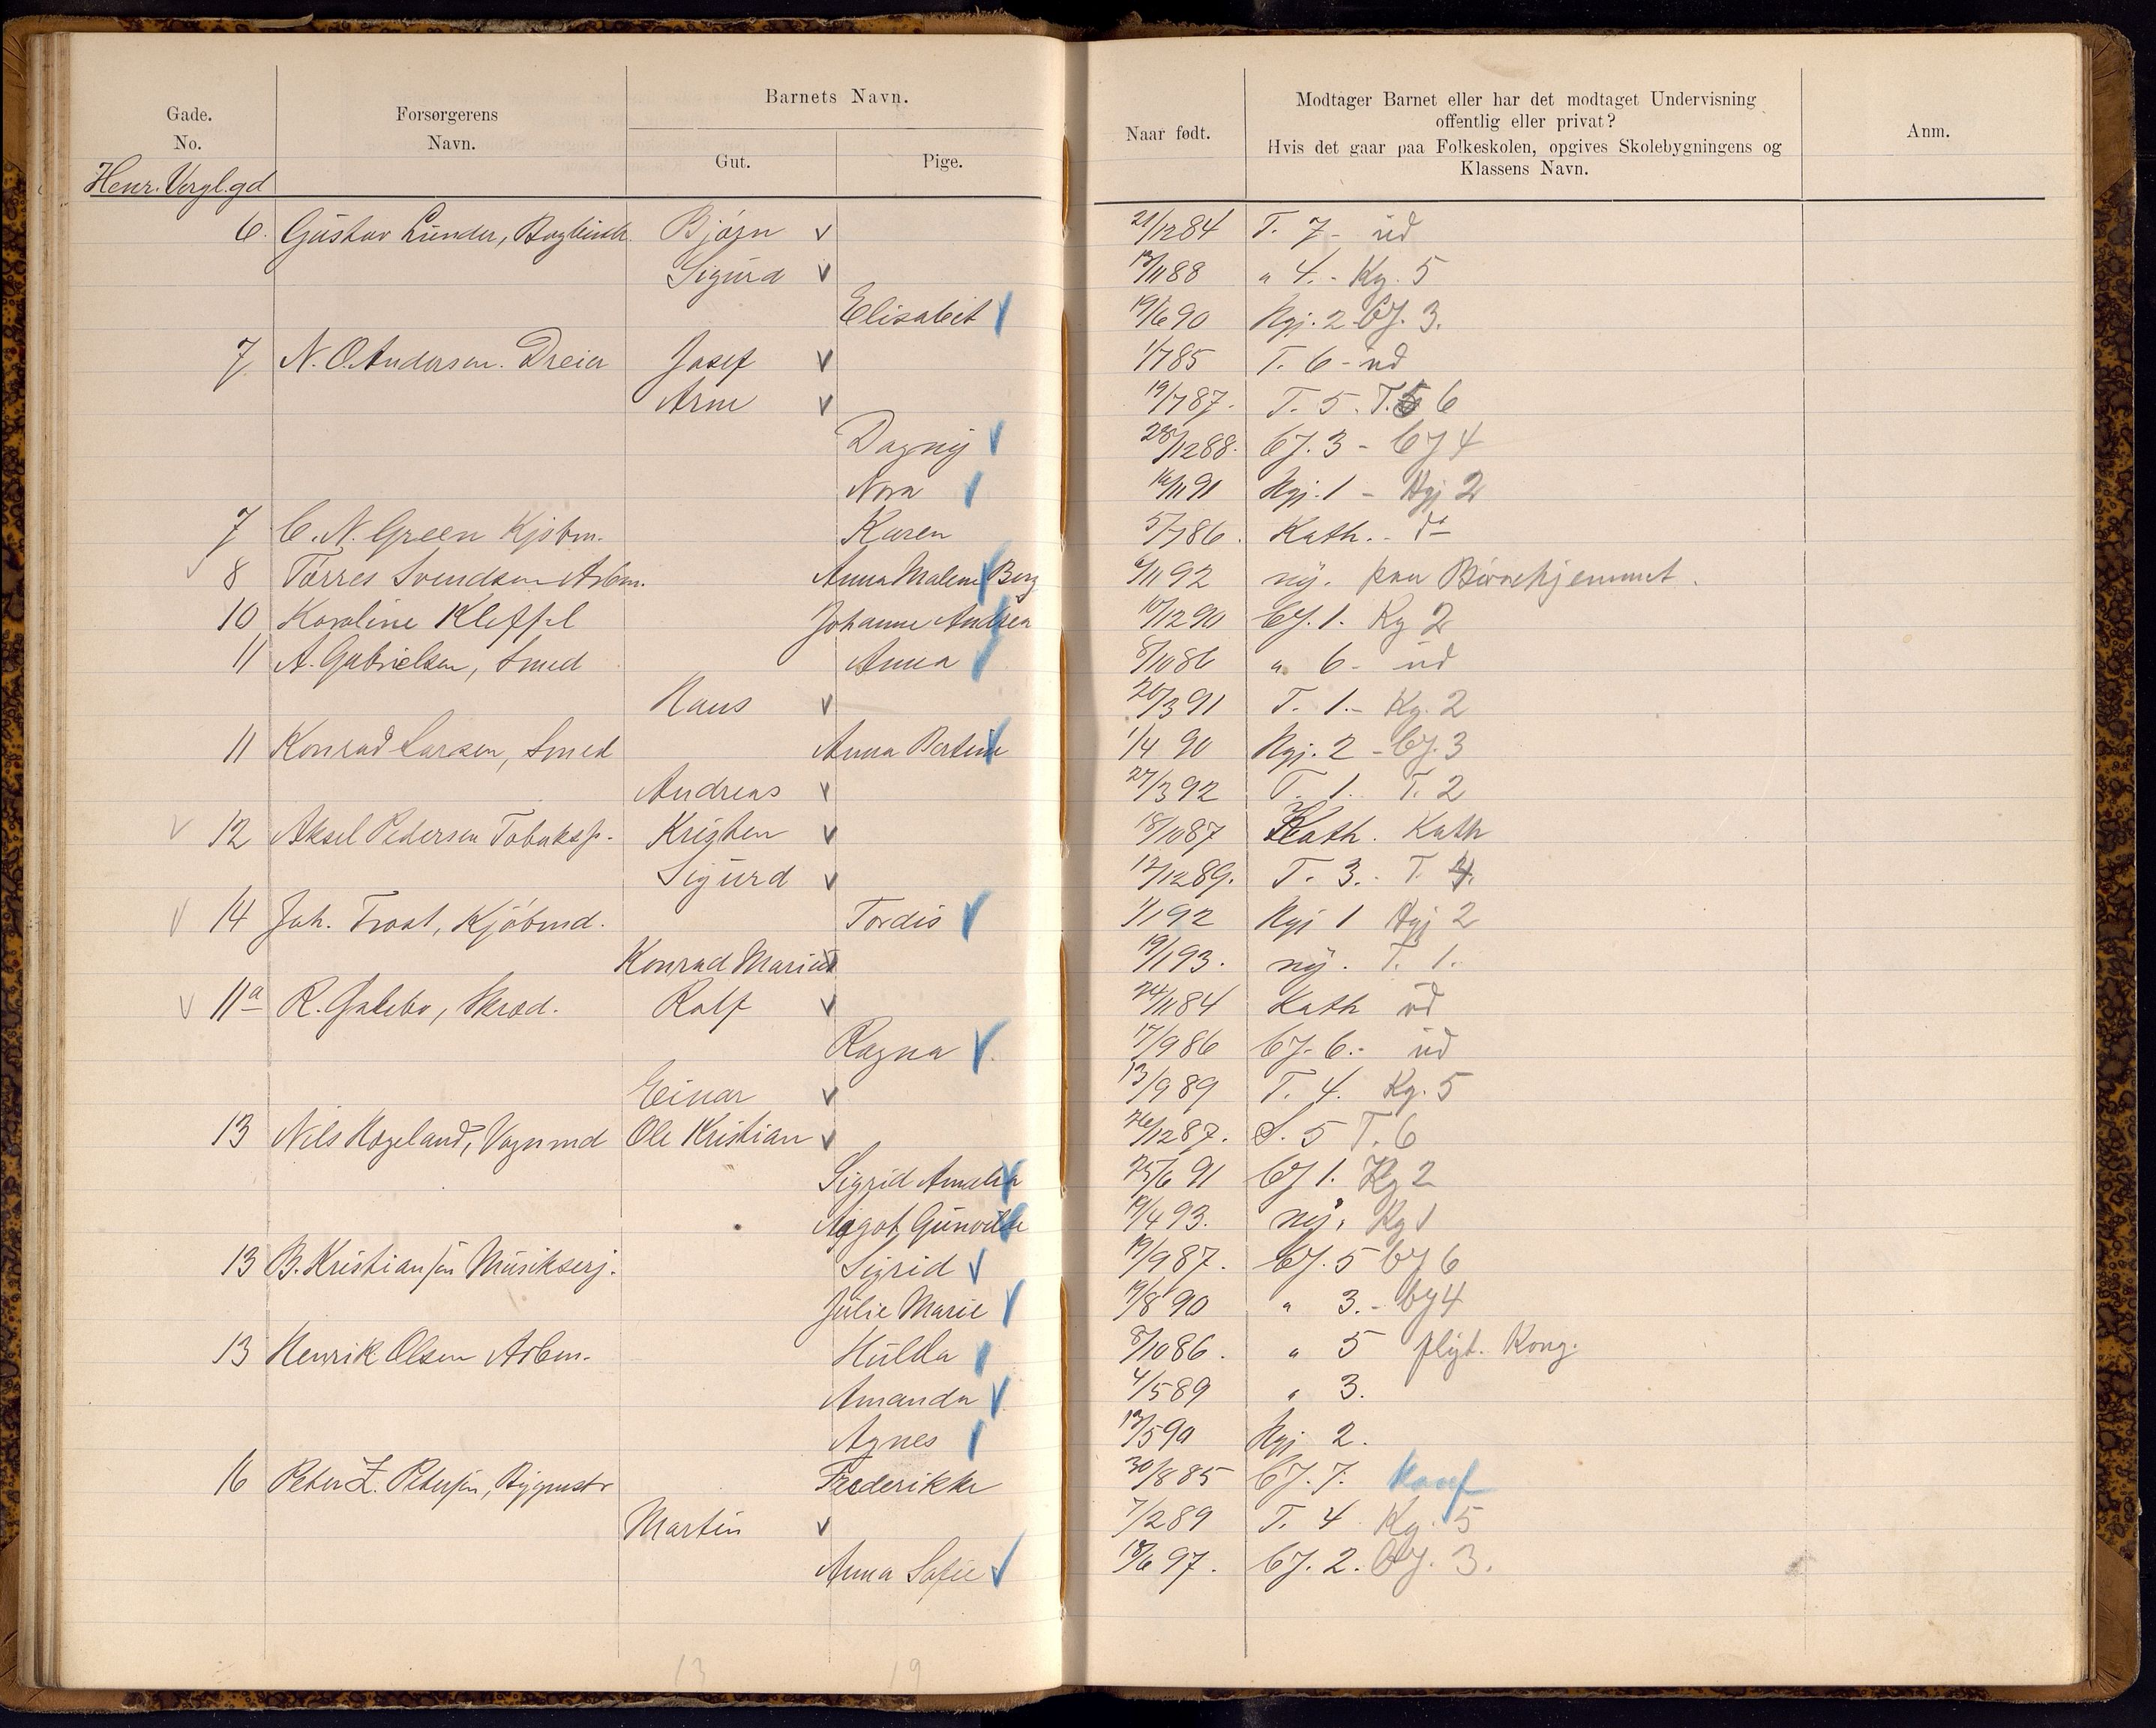 Gade.
No.
Forsørgerens
Navn.
Barnets Navn.
Gut.
Pige.
Naar født.
Modtager Barnet eller har det modtaget Undervisning
offentlig eller privat?
Hvis det gaar paa Folkeskolen, opgives Skolebygningens og
Klassens Navn.
Anm.
Henr. Vergl.gd
6. Gustav Lunder, Bogbindr. Bjørn v 21/12 84 T. 7 - ud
Sigurd v /11 88 " 4. - Kg. 5
Elisabet 19/6 90 Ngj. 2 3.
7 N. O. Andersen. Dreier Josef v 1/7 85 T. 6 - ud
Arne v 19/7 87. T. 5. T. 6
Dagny 28/12 88. 3 - 4
Nora 16/11 91 Ngj. 1 - Ngj 2
7 C. N. Green Kjøbm. Karen 5/7 86. Kath.
8 Tørres Svendsen Arbm. Anna Malene Berg 6/11 92 ny. paa Børnehjemmet.
10 Karoline Kleppel Johanne 10/12 90 1. Kg 2
11 A. Gabrielsen, Smed Anna 8/10 86 " 6 - ud
Hans v 20/3 91 T. 1. - Kg. 2
11 Konrad Larsen, Smed Anna Bertine 1/4 90 Ngj. 2 - 3
Andreas v 27/3 92 T. 1. T. 2
v 12 Aksel Pedersen Tobaksp. Kristen v 18/10 87 Kath. Kath
Sigurd v 17/12 89. T. 3. - T. 4.
v 14 Joh. Trost, Kjøbmd. Tordis 1/1 92 Ngj 1 Ngj 2
Konrad Marius 19/1 93. ny. T. 1.
v 11a R. Skræd. Rolf v 24/11 84 Kath ud
Ragna 17/9 86 6. - ud
Einar v 13/9 89 T. 4. Kg. 5
13 Nils Hogeland, Vognmd Ole Kristian v 26/12 87. S. 5 T. 6
Sigrid Amalia 25/6 91 1. Kg 2
Aagot 19/4 93. ny. Kg 1
13 B. Kristiansen Musikserj. Sigrid 19/9 87. 5 6
Julie Marie 19/8 90 " 3. - 4
13 Henrik Olsen Arbm. Hulda 8/10 86. " 5 flyt. Kong.
Amanda 4/5 89 " 3.
Agnes 13/5 90 Ngj 2.
16 Peter Z. Petersen, Bygmstr Frederikke 30/8 85 7. Konf
Martin v 7/2 89 T. 4 Kg. 5
Anna Sofie 18/6 97. 2. 3.
13 19